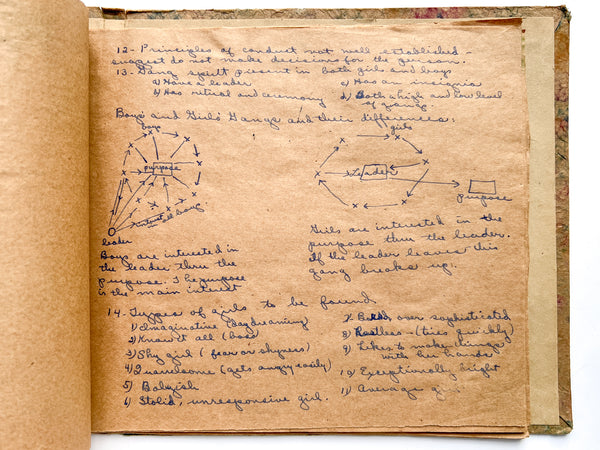 12- Principles of conduct not well established -
suggest do not make decisions for the person.
13- Gang spirit present in both girls and boys
a) Have a leader
c) Has an insignia
b) Has ritual and ceremony
d) Both a high and low level
of gangs
Boys and Girls Gangs and their differences:
boys
purpose
interest all boys
leader
Boys are interested in
the leader thru the
purpose. The purpose
is the main interest
girls
Leader
purpose
Girls are interested in the
purpose thru the leader.
If the leader leaves this
gang breaks up.
14. Types of girls to be found
1) Imaginative (daydreaming)
2) Know it all (boss)
3) Shy girl (fear or shyness)
4) Quarrelsome (gets angry easily)
5) Babyish
6) Stolid, unresponsive girl.
7. over sophisticated
8) Restless - (tires quickly)
9) Likes to make things
with her hands
10) Exceptionally bright
11) Average girl